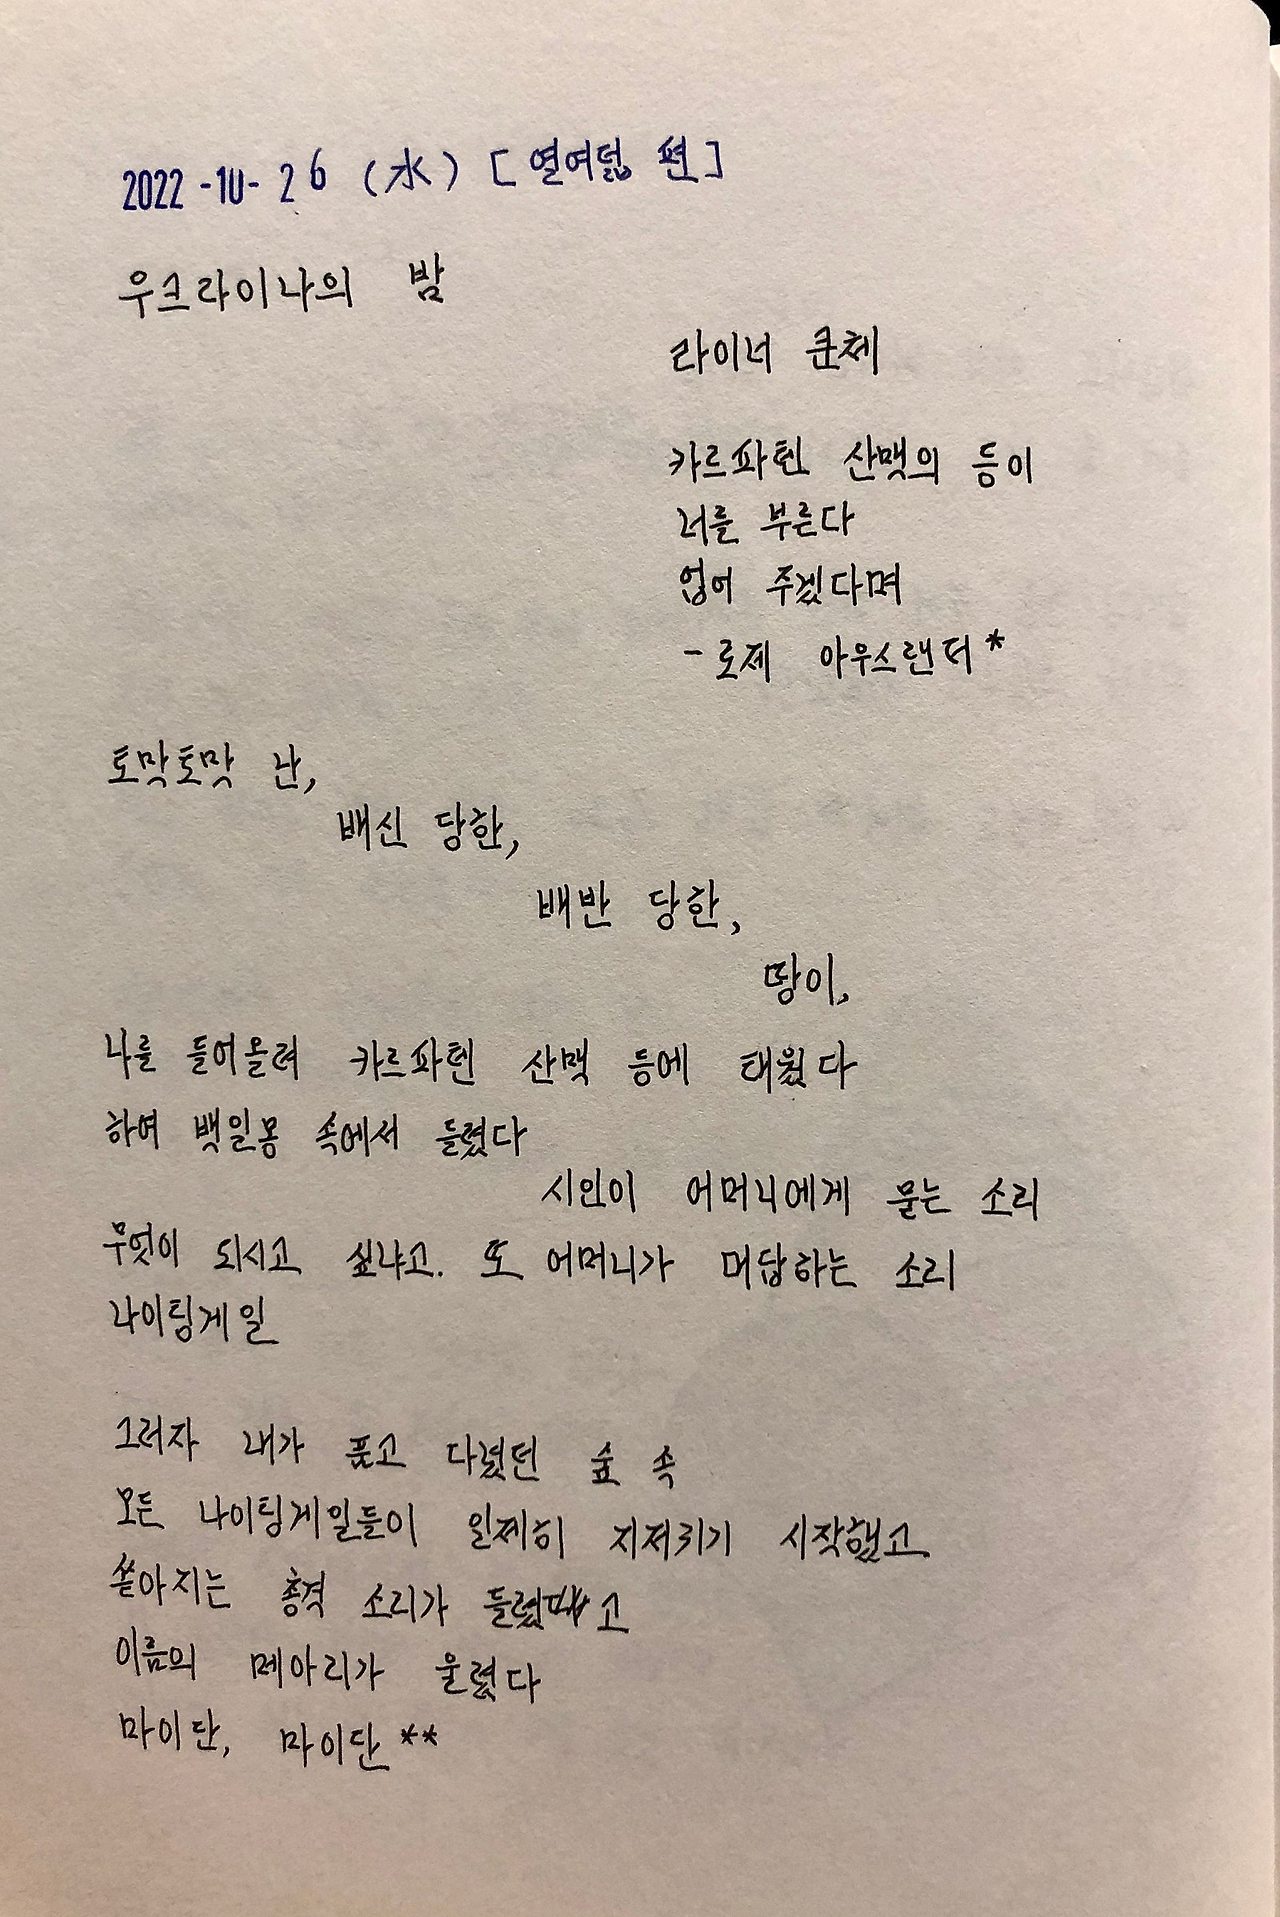 2022-10-26 (水) [열여덟 편]
우크라이나의 밤
라이너 쿤체
카르파텐 산맥의 등이
너를 부른다
업어 주겠다며
- 로제 아우스랜더*
토막토막 난,
배신 당한,
배반 당한,
땅이,
나를 들어올려 카르파텐 산맥 등에 태웠다
하여 백일몽 속에서 들렸다
시인이 어머니에게 묻는 소리
무엇이 되시고 싶냐고. 또 어머니가 대답하는 소리
나이팅게일
그러자 내가 품고 다녔던 숲 속
모든 나이팅게일들이 일제히 지저귀기 시작했고
쏟아지는 총격 소리가 들렸고
이름의 메아리가 울렸다
마이단, 마이단**